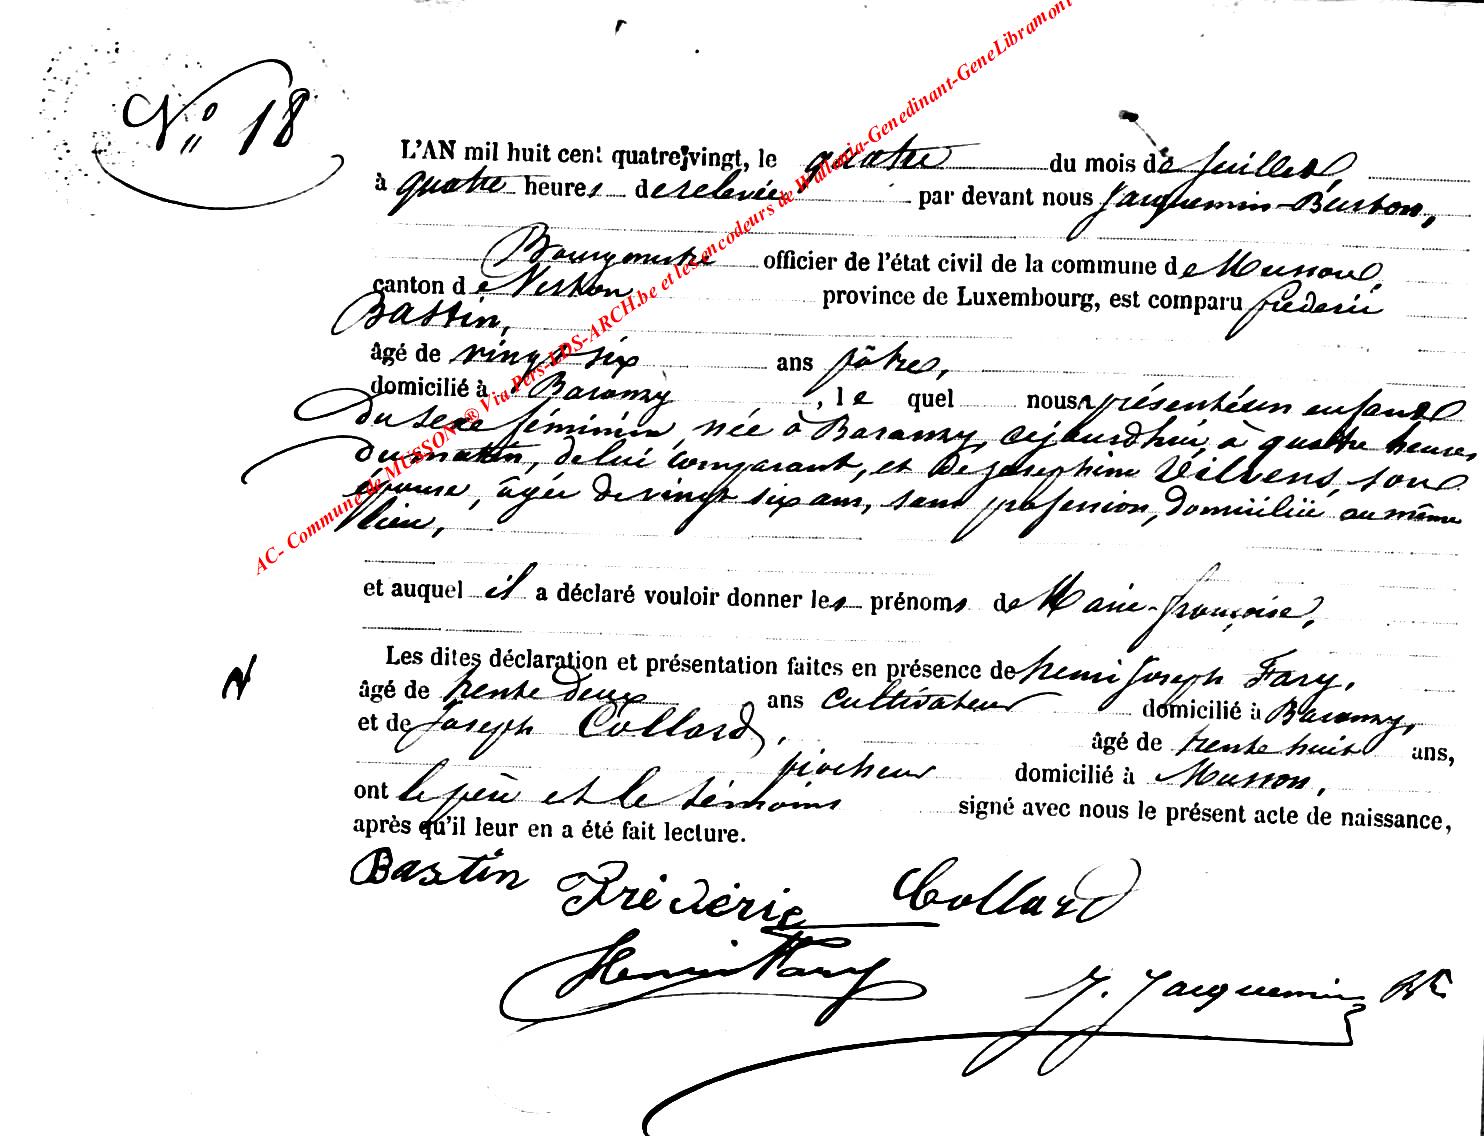 N° 18
L'AN mil huit cent quatre-vingt, le quatre du mois de juillet,
à quatre heures de relevée par devant nous Jacquemin-Burton,
Bourgmestre officier de l'état civil de la commune de Musson,
canton de Virton province de Luxembourg, est comparu frédéric
Bastin,
âgé de vingt six ans pâtre,
domicilié à Baranzy , le quel nous a présenté un enfant
du sexe féminin, née à Baranzy, cejourd'hui, à quatre heures
du matin, de lui comparant, et de Joséphine Vilvens, son
épouse, âgée de vingt six ans, sans profession, domiciliée au même
lieu,
et auquel il a déclaré vouloir donner les prénoms de Marie-françoise,
Les dites déclaration et présentation faites en présence de henri Joseph Fary,
âgé de trente deux ans cultivateur domicilié à Baranzy,
et de Joseph Collard, âgé de trente huit ans,
piocheur domicilié à Musson,
ont le père et le témoins signé avec nous le présent acte de naissance,
après qu'il leur en a été fait lecture.
Bastin Frédéric Collard
Henri Fary J. Jacquemin Bt
AC- Commune de MUSSON ® Via Pers-LDS-ARCH.be et les encodeurs de Wallonia-Genedinant-GeneLibramont